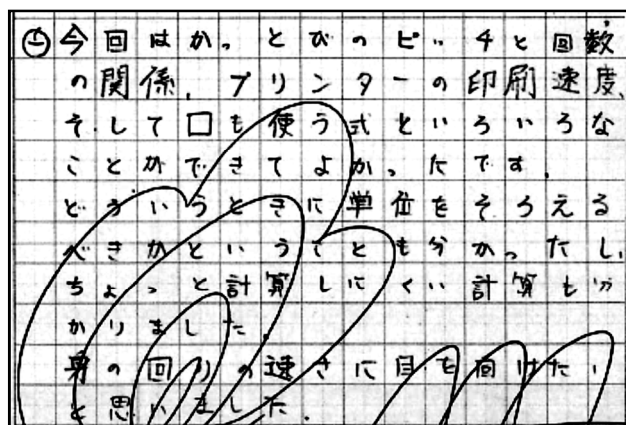 ㊀今回はかっとびのピッチと回数
の関係、プリンターの印刷速度、
そして□も使う式といろいろな
ことができてよかったです。
どういうときに単位をそろえる
べきかということも分かったし、
ちょっと計算しにくい計算も分
かりました。
身の回りの速さに目を向けたい
と思いました。